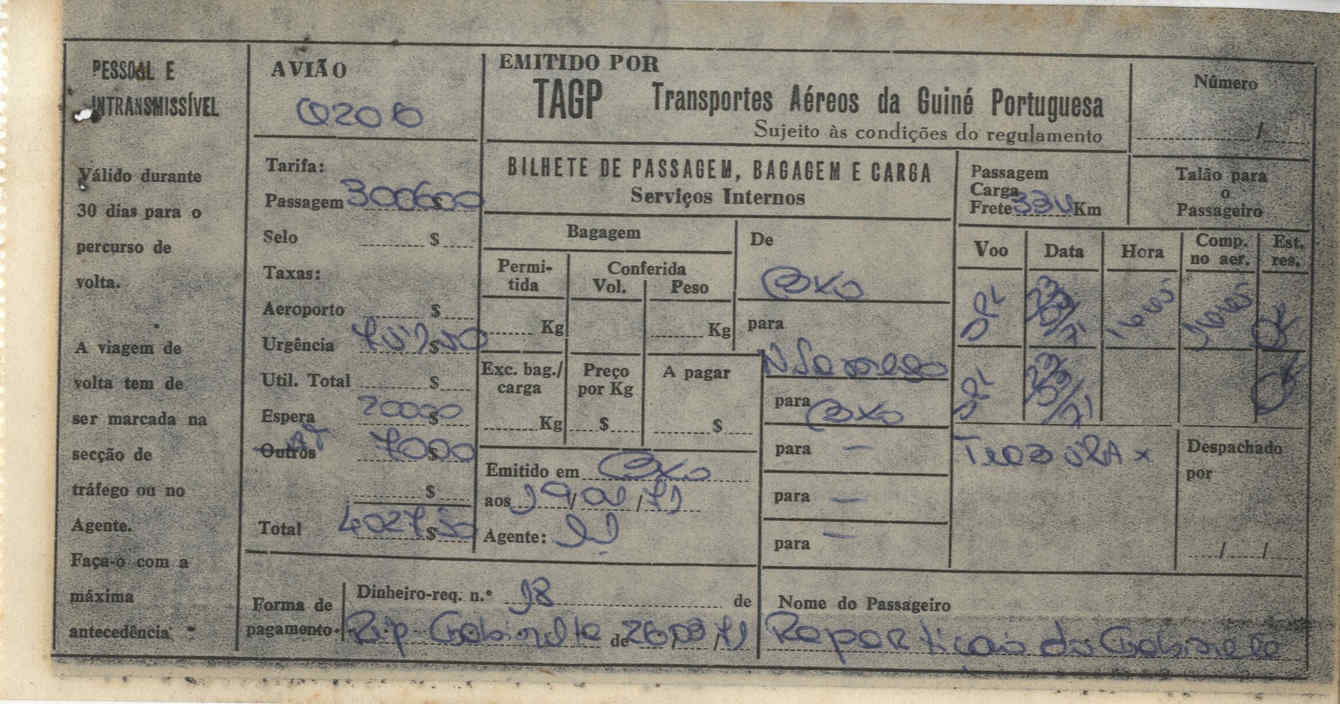 PESSOAL E
INTRANSMISSÍVEL
Válido durante
30 dias para o
percurso de
volta.
A viagem de
volta tem de
ser marcada na
secção de
tráfego ou no
Agente.
Faça-o com a
máxima
antecedência
AVIÃO
Tarifa:
Passagem 300600
Selo $
Taxas:
Aeroporto $
Urgência $
Util. Total $
Espera 20000
Outros AT 7000
$
Total 4027$50
EMITIDO POR
TAGP Transportes Aéreos da Guiné Portuguesa
Sujeito às condições do regulamento
Número
/
BILHETE DE PASSAGEM, BAGAGEM E CARGA
Serviços Internos
Passagem
Carga
Frete Km
Talão para
o
Passageiro
Bagagem
Permi-
tida
Conferida
Vol. Peso
Kg Kg
Exc. bag./
carga
Preço
por Kg
A pagar
Kg $ $
Emitido em BXO
aos /71
Agente:
De
BXO
para
para
BXO
para —
para —
para —
Voo Data Hora Comp.
no aer. Est.
res.
OK
OK
Despachado
por
/ /
Forma de
pagamento.
Dinheiro-req. n.º 18 de
Rep Gabinete de 26/08/71
Nome do Passageiro
Repartição do Gabinete